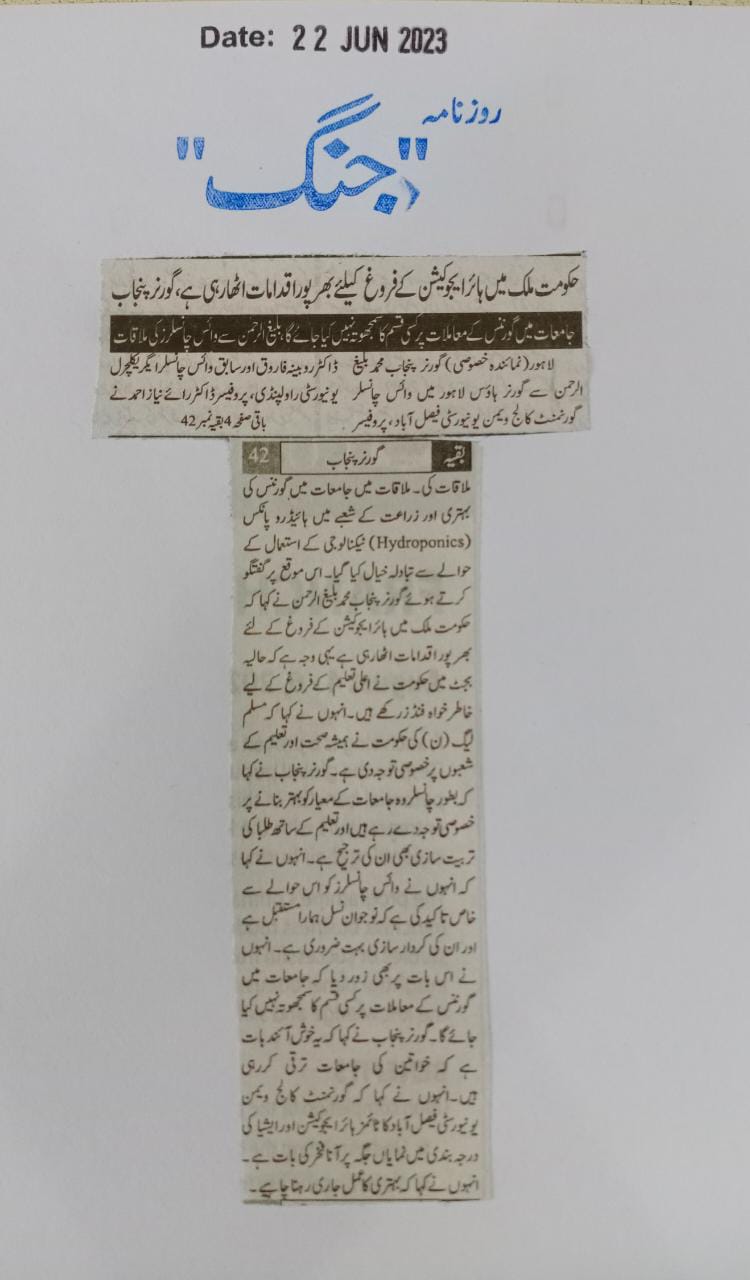 Date: 22 JUN 2023
روزنامہ
"جنگ"
حکومت ملک میں ہائر ایجوکیشن کے فروغ کیلئے بھرپور اقدامات اٹھا رہی ہے، گورنر پنجاب
جامعات میں گورننس کے معاملات پر کسی قسم کا سمجھوتہ نہیں کیا جائے گا، بلیغ الرحمن سے وائس چانسلرز کی ملاقات
لاہور (نمائندہ خصوصی) گورنر پنجاب محمد بلیغ
الرحمن سے گورنر ہاؤس لاہور میں وائس چانسلر
گورنمنٹ کالج ویمن یونیورسٹی فیصل آباد، پروفیسر
ڈاکٹر روبینہ فاروق اور سابق وائس چانسلر ایگریکلچرل
یونیورسٹی راولپنڈی، پروفیسر ڈاکٹر رائے نیاز احمد نے
باقی صفحہ 4 بقیہ نمبر 42
بقیہ گورنر پنجاب 42
ملاقات کی۔ ملاقات میں جامعات میں گورننس کی
بہتری اور زراعت کے شعبے میں ہائیڈرو پانکس
(Hydroponics) ٹیکنالوجی کے استعمال کے
حوالے سے تبادلہ خیال کیا گیا۔ اس موقع پر گفتگو
کرتے ہوئے گورنر پنجاب محمد بلیغ الرحمن نے کہا کہ
حکومت ملک میں ہائر ایجوکیشن کے فروغ کے لئے
بھرپور اقدامات اٹھا رہی ہے یہی وجہ ہے کہ حالیہ
بجٹ میں حکومت نے اعلی تعلیم کے فروغ کے لیے
خاطر خواہ فنڈز رکھے ہیں۔ انہوں نے کہا کہ مسلم
لیگ (ن) کی حکومت نے ہمیشہ صحت اور تعلیم کے
شعبوں پر خصوصی توجہ دی ہے۔ گورنر پنجاب نے کہا
کہ بطور چانسلر وہ جامعات کے معیار کو بہتر بنانے پر
خصوصی توجہ دے رہے ہیں اور تعلیم کے ساتھ طلبا کی
تربیت سازی بھی ان کی ترجیح ہے۔ انہوں نے کہا
کہ انہوں نے وائس چانسلرز کو اس حوالے سے
خاص تاکید کی ہے کہ نوجوان نسل ہمارا مستقبل ہے
اور ان کی کردار سازی بہت ضروری ہے۔ انہوں
نے اس بات پر بھی زور دیا کہ جامعات میں
گورننس کے معاملات پر کسی قسم کا سمجھوتہ نہیں کیا
جائے گا۔ گورنر پنجاب نے کہا کہ یہ خوش آئند بات
ہے کہ خواتین کی جامعات ترقی کر رہی
ہیں۔ انہوں نے کہا کہ گورنمنٹ کالج ویمن
یونیورسٹی فیصل آباد کا ٹائمز ہائر ایجوکیشن اور ایشیا کی
درجہ بندی میں نمایاں جگہ پر آنا فخر کی بات ہے۔
انہوں نے کہا کہ بہتری کا عمل جاری رہنا چاہیے۔